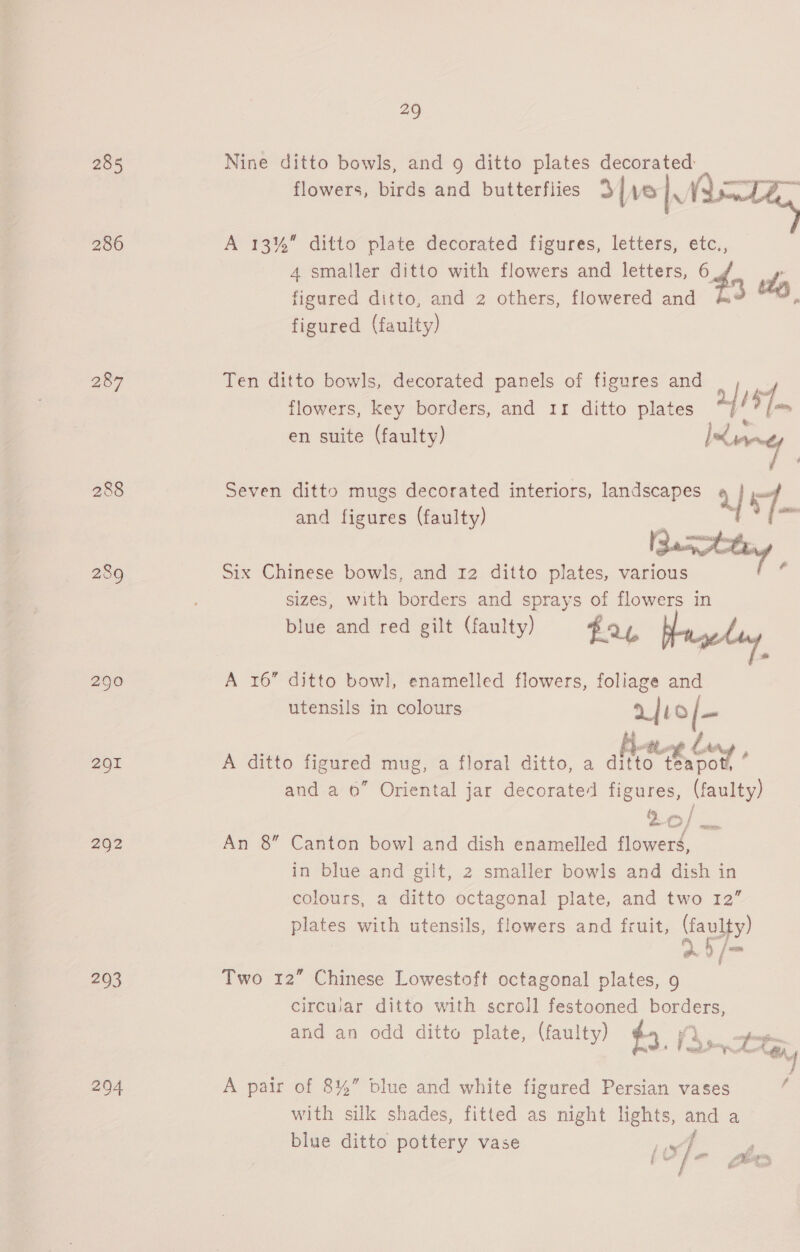 29
285 Nine ditto bowls, and 9 ditto plates decorated
flowers, birds and butterflies 3/10/
286 A 13½" ditto plate decorated figures, letters, etc.,
4 smaller ditto with flowers and letters, 6
figured ditto, and 2 others, flowered and £3 do.
figured (faulty)
287 Ten ditto bowls, decorated panels of figures and
flowers, key borders, and 11 ditto plates 2/15/-
en suite (faulty)
288 Seven ditto mugs decorated interiors, landscapes 2/5/-
and figures (faulty)
289 Six Chinese bowls, and 12 ditto plates, various
sizes, with borders and sprays of flowers in
blue and red gilt (faulty)
290 A 16" ditto bowl, enamelled flowers, foliage and
utensils in colours 2/10/-
291 A ditto figured mug, a floral ditto, a ditto teapot,
and a 6" Oriental jar decorated figures, (faulty)
20/-
292 An 8" Canton bowl and dish enamelled flowers,
in blue and gilt, 2 smaller bowls and dish in
colours, a ditto octagonal plate, and two 12"
plates with utensils, flowers and fruit, (faulty)
25/-
293 Two 12" Chinese Lowestoft octagonal plates, 9
circular ditto with scroll festooned borders,
and an odd ditto plate, (faulty) £3.
294 A pair of 8½" blue and white figured Persian vases
with silk shades, fitted as night lights, and a
blue ditto pottery vase 10/- do